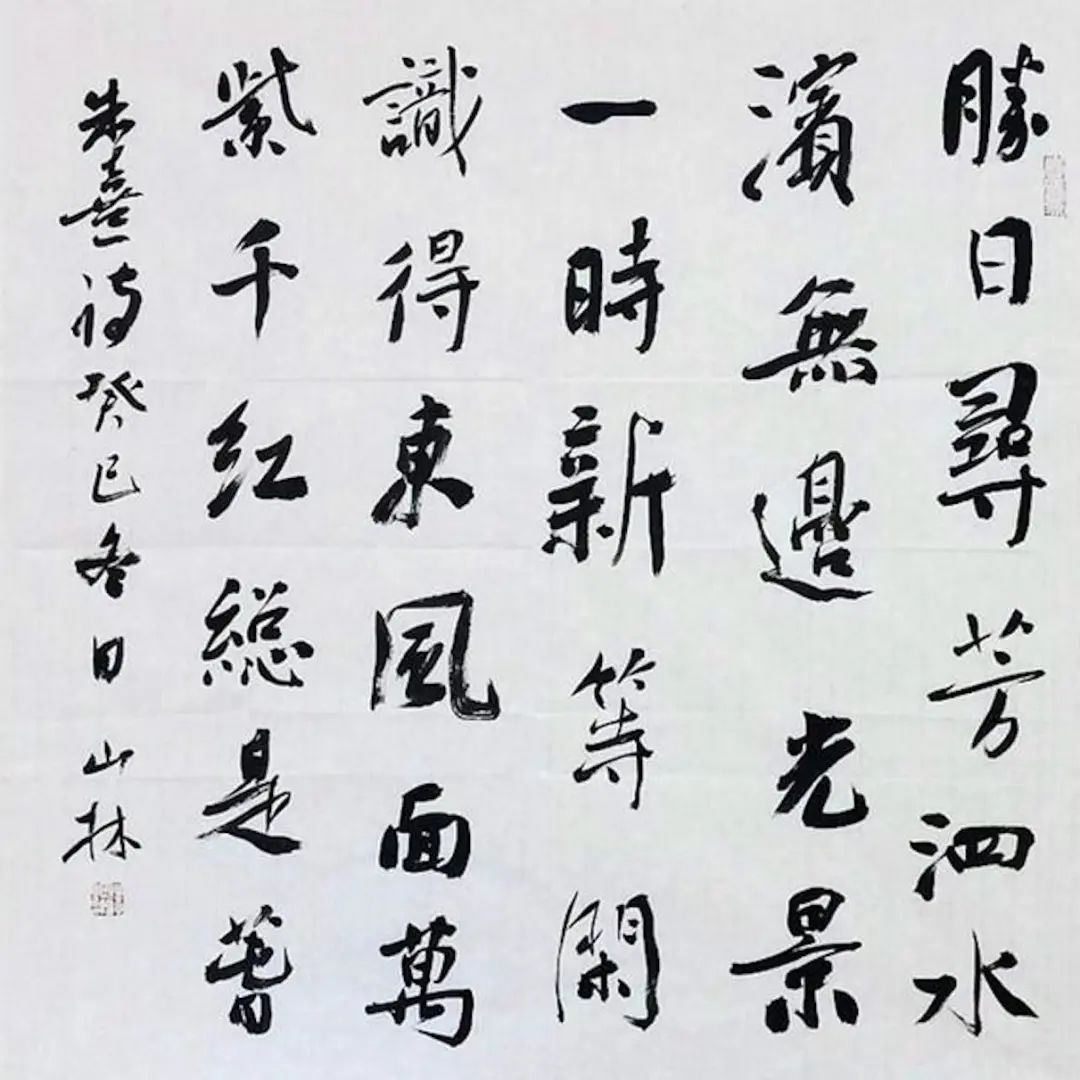 勝日尋芳泗水
濱無邊光景
一時新等閑
識得東風面萬
紫千红総是萅
朱熹诗癸巳冬日山林